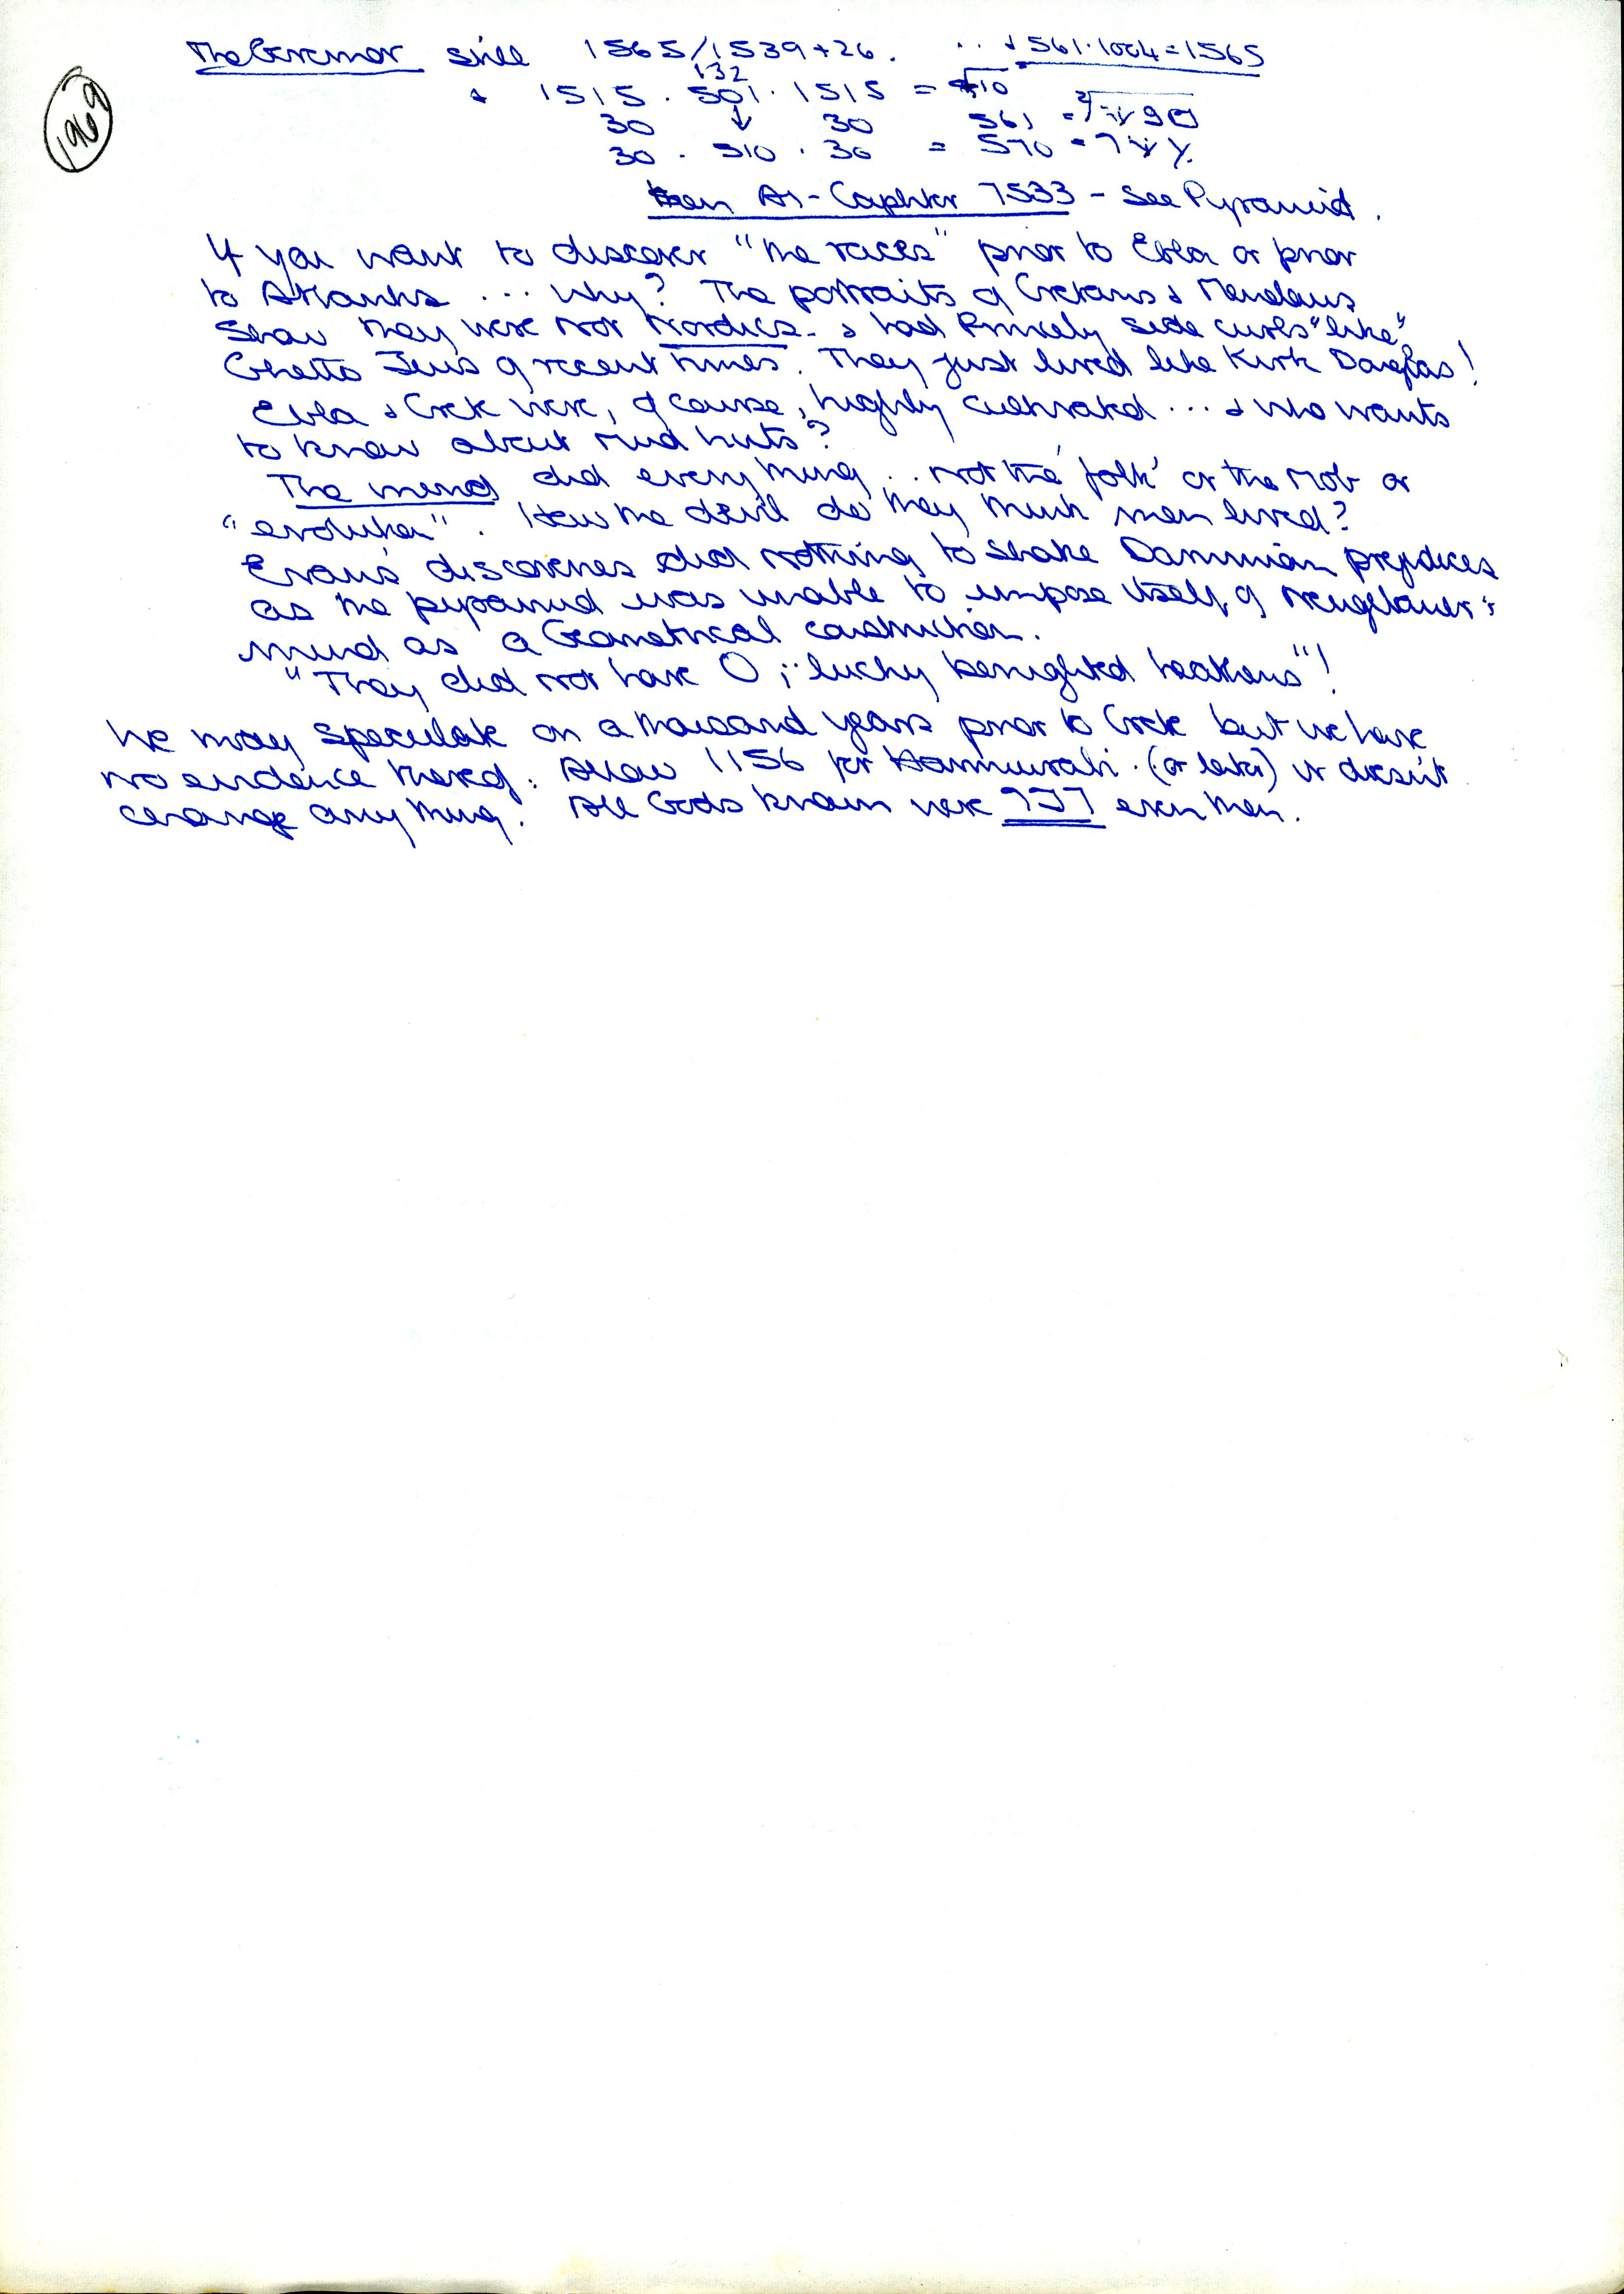 1969
The Governor still 1565/1539+26. .. & 561.1004=1565
132
& 1515 . 501 . 1515 = 410
30 ↓ 30 561 = 90
30 . 510 . 30 = 570 =
Ar-Caphtor 7533 - see Pyramid.
If you want to discover "the races" prior to Ebla or prior
to Atlantis ... why? The portraits of Cretans & Menelaus
show they were not Nordics - & had Princely side curls "like"
Ghetto Jews of recent times. They just lived like Kirk Douglas!
Ebla & Crete were, of course, highly cultivated ... & who wants
to know about mud huts?
The mind did everything ... not the 'folk' or the mob or
"evolution". How the devil do they think men lived?
Evans' discoveries did nothing to shake Darwinian prejudices
as the pyramid was unable to impose itself, of Neugebauer's
mind as a Geometrical construction.
"They did not have 0; lucky benighted heathens"!
We may speculate on a thousand years prior to Crete but we have
no evidence thereof. Allow 1156 for Hammurabi. (or later) it doesn't
change anything. All Gods known were even then.